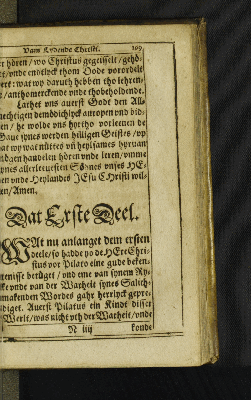 Vam Lydende Christi. 109
er hören / wo Christus gegeisselt / gehö-
et / vnde endtlyck thom Dode vorordelt
ert: wat wy daruth hebben tho lehren,
t / anthomerckende vnde thobeholdende.
Lathet vns auerst Godt den All-
mechtigen demödichlyck anropen vnd bid-
en / he wolde vns hyrtho vorleenen de
Gaue synes werden hilligen Geistes / vp
dat wy wat nüttes vth
ndgen handelen hören vnde leren / vmme
ynes allerleuesten Sönes vnses HE-
en vnde Heylandes JEsu CHristi wil-
en / Amen.
Dat Erste Deel.
WAt nu anlanget dem ersten
deele / so hadde vo de HEre Chri-
stus vor Pilato eine gude beken-
tenisse betüget / vnd eme van synem Ry-
ke vnde van der Warheit synes Salich-
makenden Wordes gahr herrlyck gepre-
diget. Auerst Pilatus ein Kindt disser
Werlt / was nicht vth der Warheit / vnde
N iiij konde